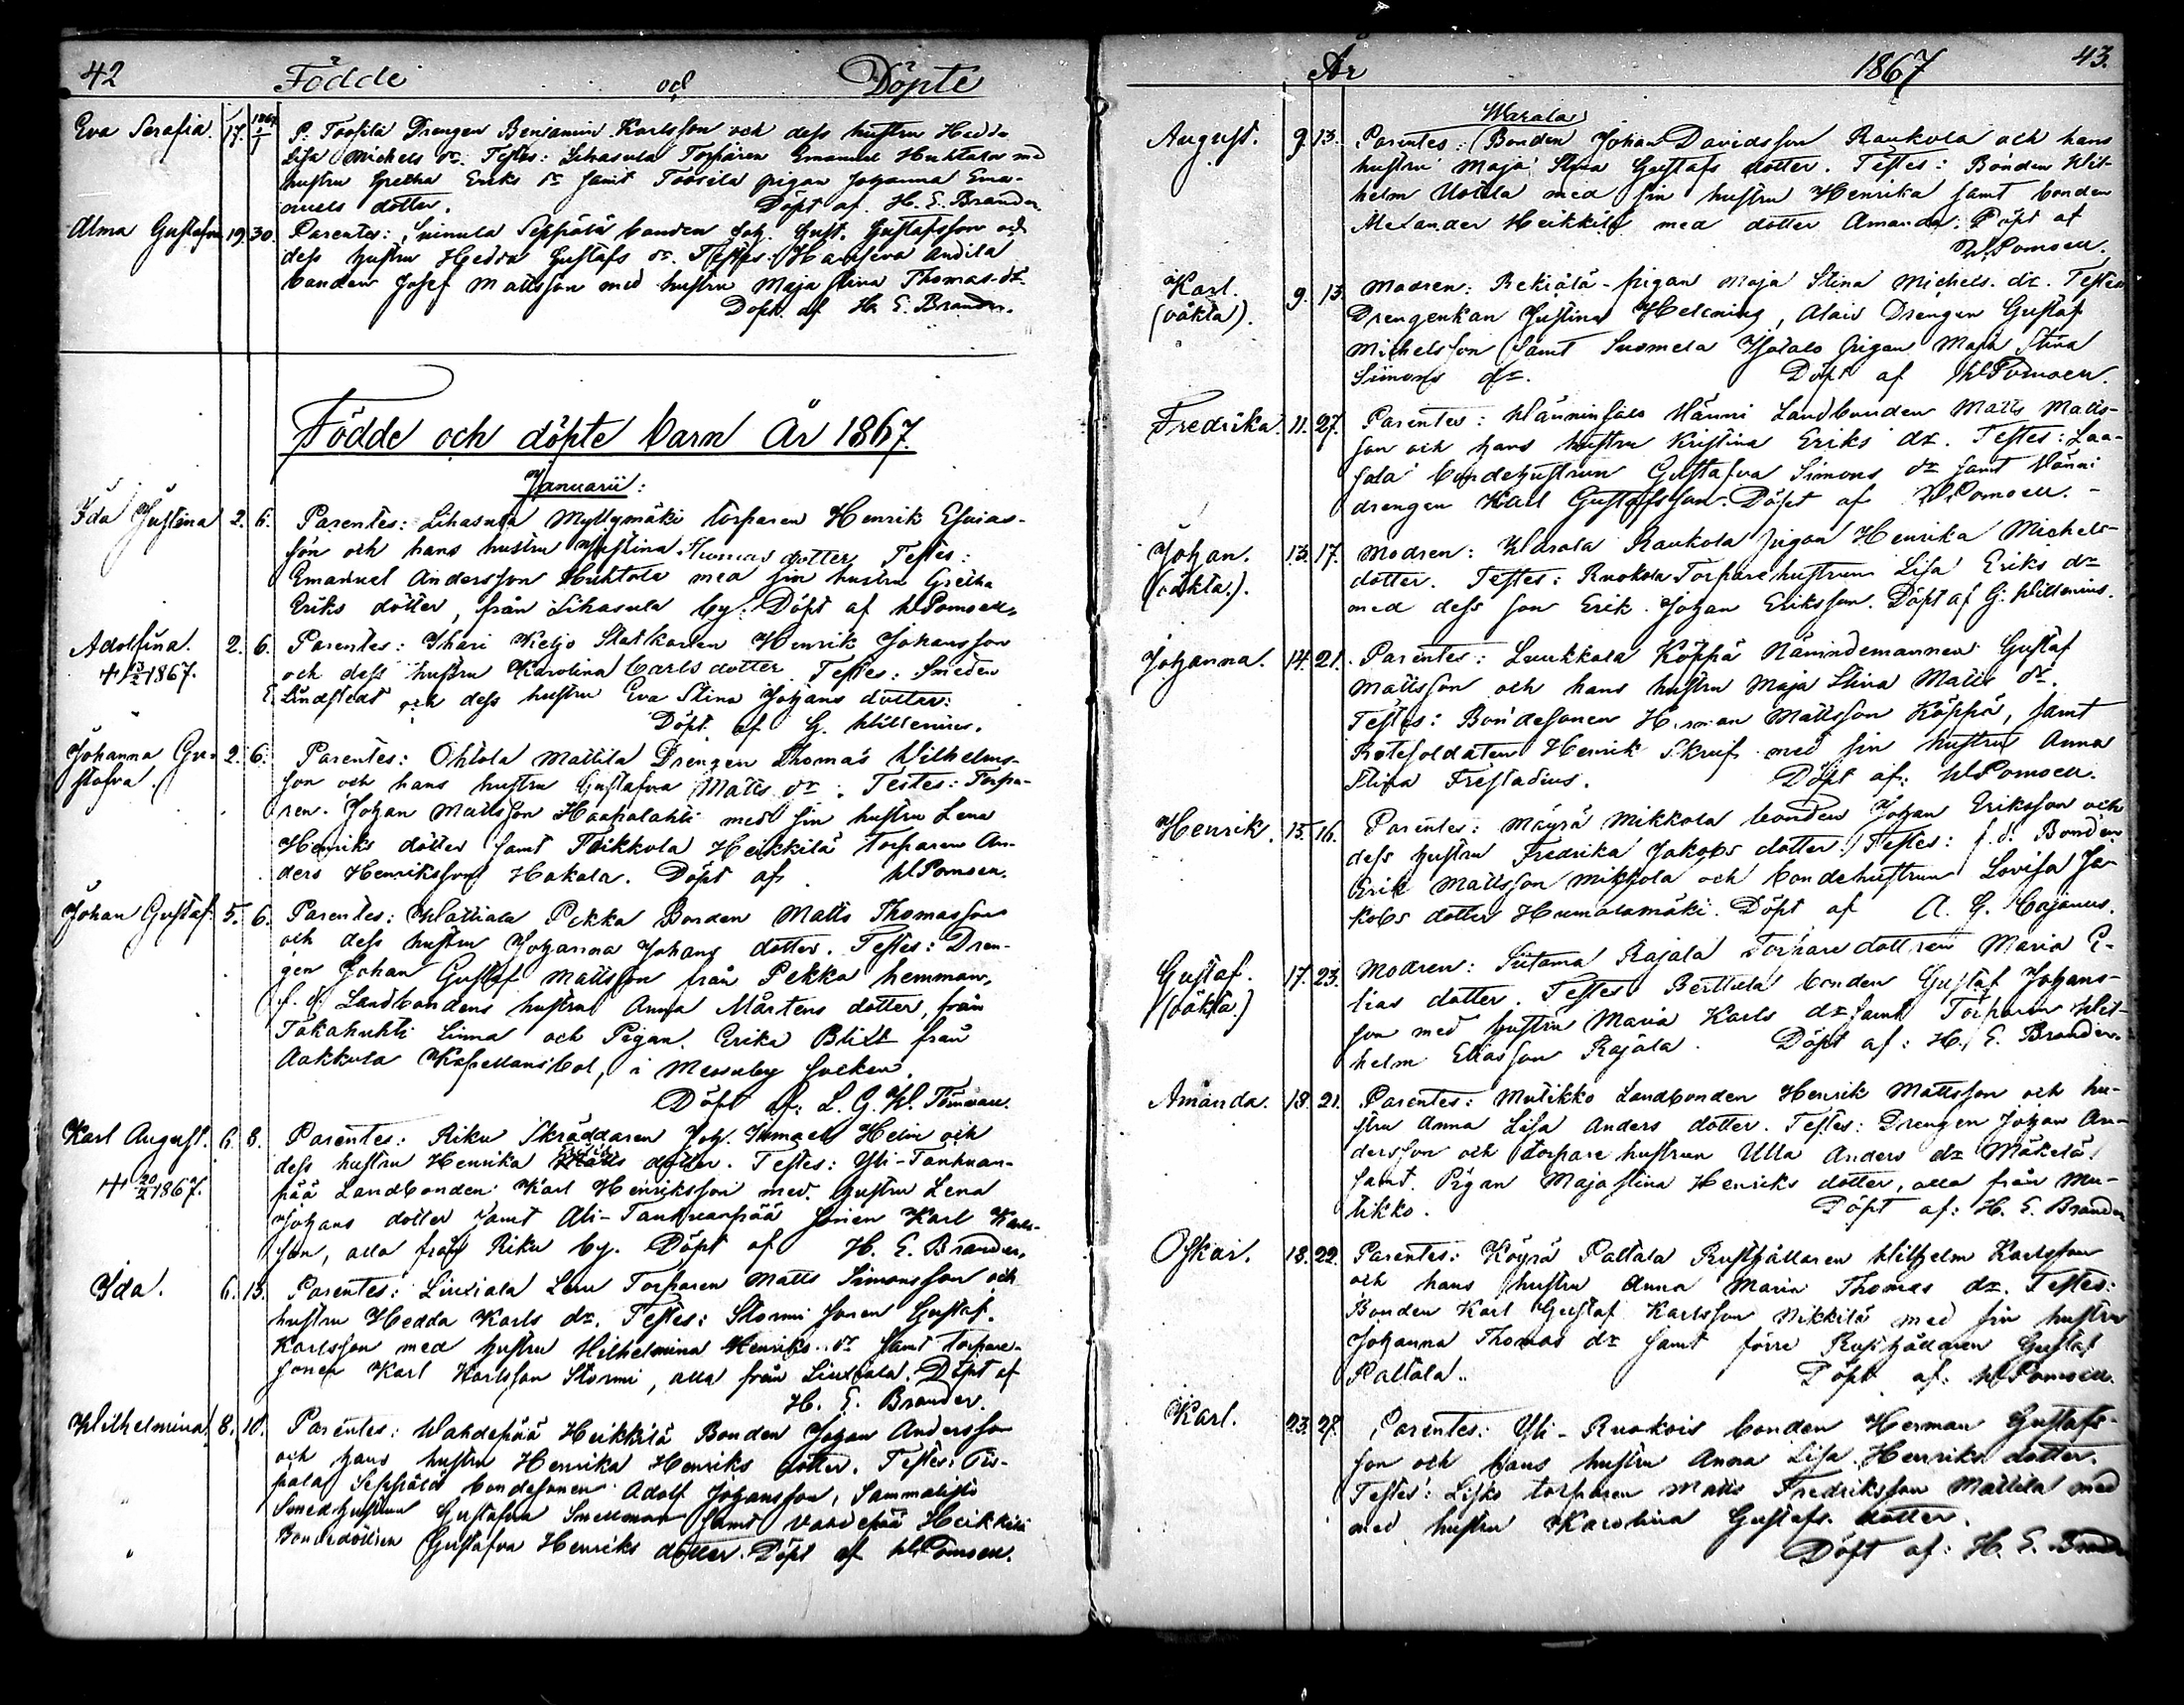 42 Födde och Döpte
Eva Serafia. 17. 1867 2/1 P: Toosila Drengen Benjamin Karlsson och dess hustru Hedda
Lisa Michels dr. Testes: Lihasula Torparen Emanuel Huhtala med
hustru Gretha Eriks dr samt Toosila pigan Johanna Ema-
nuels dotter. Döpt af. H. E. Brander
Alma Gustafva 19. 30. Parentes: Seppälä bonden Joh. Gust. Gustafsson och
dess hustru Hedda Gustafs dr. Testes: Andila
bonden Josef Mattsson med hustru Maja Stina Thomas dr.
Döpt af H. E. Brander.
Födde och döpte barn År 1867.
Januarii:
Ida Justina 2. 6. Parentes: Lihasula Myllymäki torparen Henrik Esaias-
son och hans hustru Justina Thomas dotter Testes:
Emanuel Andersson Huhtala med sin hustru Gretha
Eriks dotter, från Lihasula by. Döpt af W Pomoell.
Adolfina. 2. 6. Parentes: Ihari Keljo Statkarlen Henrik Johansson
+ 13/2 1867. och dess hustru Karolina Carls dotter Testes: Smeden
E. Lindstedt och dess hustru Eva Stina Johans dotter:
Döpt af G. Willenius.
Johanna Gu- 2. 6. Parentes: Ohtola Mattila Drengen Thomas Wilhelms-
stafva. son och hans hustru Gustafva Matts dr. Testes: Torpa-
ren Johan Mattsson Haapalahti med sin hustru Lena
Henriks dotter samt Toikkola Heikkilä torparen An-
ders Henriksson Hakala. Döpt af W Pomoell.
Johan Gustaf. 5. 6. Parentes: Wattiala Pekka Bonden Matts Thomasson
och dess hustru Johanna Johans dotter. Testes: Dren-
gen Johan Gustaf Mattsson från Pekka hemman,
f. d. Landbondens hustru Anna Mårtens dotter, från
Takahuhti Linna och Pigan Erika Blixt från
Aakkula Kapellansbol, i Messuby socken.
Döpt af: L. G. W.
Karl August. 6. 8. Parentes: Riku Skräddaren Joh. Ismael Helin och
+ 20/2 1867. dess hustru Henrika dotter. Testes: Yli-Tanhuan-
pää Landbonden Karl Henriksson med hustru Lena
Johans dotter samt Ali-Tanhuanpää sonen Karl Karls-
son, alla från Riku by. Döpt af H. E. Brander.
Ida. 6. 13. Parentes: Liuxiala Torparen Matts Simonsson och
hustru Hedda Karls dr. Testes: Stormi sonen Gustaf
Karlsson med hustru Wilhelmina Henriks dr samt torpare-
sonen Karl Karlsson Stormi, alla från Liuxiala. Döpt af
H. E. Brander.
Wilhelmina. 8. 10. Parentes: Wahdepää Heikkilä Bonden Johan Andersson
och hans hustru Henrika Henriks dotter. Testes: Tii-
hala Seppälä bondesonen Adolf Johansson, Sammalisto
Smedhustrun Gustafva Smedman samt Vahdepää Heikkilä
Bondedottren Gustafva Henriks dotter. Döpt af W Pomoell.
År 1867 43.
Warala
August. 9. 13. Parentes: Bonden Johan Davidsson Raukola och hans
hustru Maja Stina Gustafs dotter. Testes: Bonden Wil-
helm Uotila med sin hustru Henrika samt bonden
Alexander Heikkilä med dotter Amanda. Döpt af
W Pomoell.
Karl. 9. 13. Modren: Rekiälä pigan Maja Stina Michels dr. Testes
(oäkta). Drengenkan Justina Helening, Alais Drengen Gustaf
Michelsson samt Suomela pigan Maja Stina
Simons dr. Döpt af W Pomoell.
Fredrika. 11. 27. Parentes: Wänninsalo Wänni Landbonden Matts Matts-
son och hans hustru Kristina Eriks dr. Testes: Laa-
sola bondehustrun Gustafva Simons dr samt Wänni
drengen Karl Gustafsson. Döpt af W Pomoell.
Johan. 13. 17. Modren: Warala Raukola pigan Henrika Michels
(oäkta.). dotter. Testes: Ruokola Torparehustrun Lisa Eriks dr
med dess son Erik Johan Eriksson. Döpt af G. Willenius.
Johanna. 14. 21. Parentes: Luukkala Köppä Nämndemannen Gustaf
Mattsson och hans hustru Maja Stina Matts dr.
Testes: Bondesonen Herman Mattsson Köppä, samt
Rotesoldaten Henrik Skruf med sin hustru Anna
Stina Frestadius. Döpt af: W Pomoell.
Henrik. 15. 16. Parentes: Mäyrä Mikkola bonden Johan Eriksson och
dess hustru Fredrika Jakobs dotter. Testes: f. d. Bonden
Erik Mattsson Mikkola och bondehustrun Lovisa Ja-
kobs dotter Humalamäki. Döpt af A. G. Cajanus.
Gustaf. 17. 23. Modren: Siitama Rajala Torparedottren Maria E-
(oäkta.) lias dotter. Testes Berttula bonden Gustaf Johans-
son med hustru Maria Karls dr samt Torparen Wil-
helm Eliasson Rajala. Döpt af: H. E. Brander.
Amanda. 18. 21. Parentes: Mutikko Landbonden Henrik Mattsson och hu-
stru Anna Lisa Anders dotter. Testes: Drengen Johan An-
dersson och torparehustrun Ulla Anders dr Mäkelä
samt Pigan Maja Stina Henriks dotter, alla från Mu-
tikko. Döpt af: H. E. Brander
Oskar. 18. 22. Parentes: Köyrä Paltala Rusthållaren Wilhelm Karlsson
och hans hustru Anna Maria Thomas dr. Testes:
Bonden Karl Gustaf Karlsson Nikkilä med sin hustru
Johanna Thomas dr samt förre Rusthållaren Gustaf
Paltala. Döpt af: W Pomoell.
Karl. 23. 27. Parentes: Yli-Ruokois bonden Herman Gustafs-
son och hans hustru Anna Lisa Henriks dotter.
Testes: torparen Matts Fredriksson Mattila med
med hustru Karolina Gustafs dotter.
Döpt af: H. E. Brander